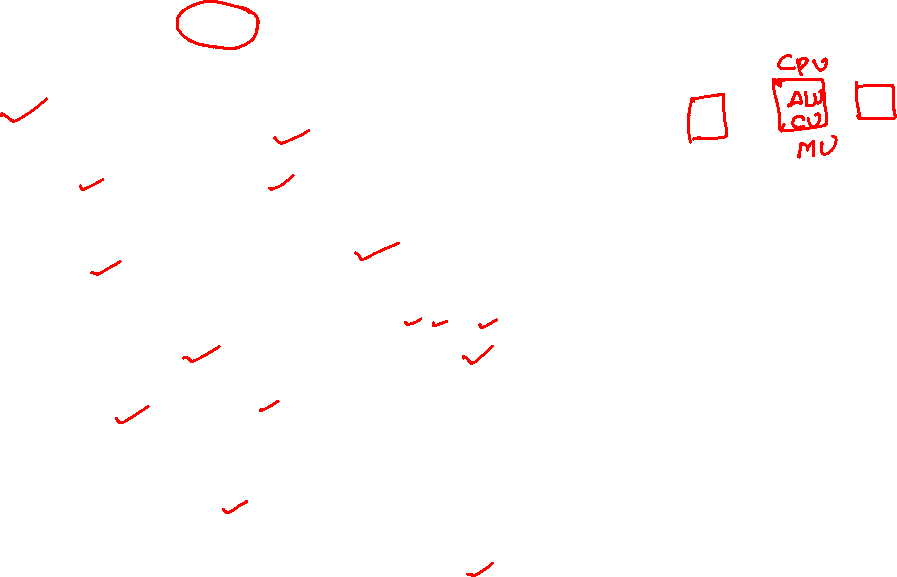 CPU
ALU
CU
MU